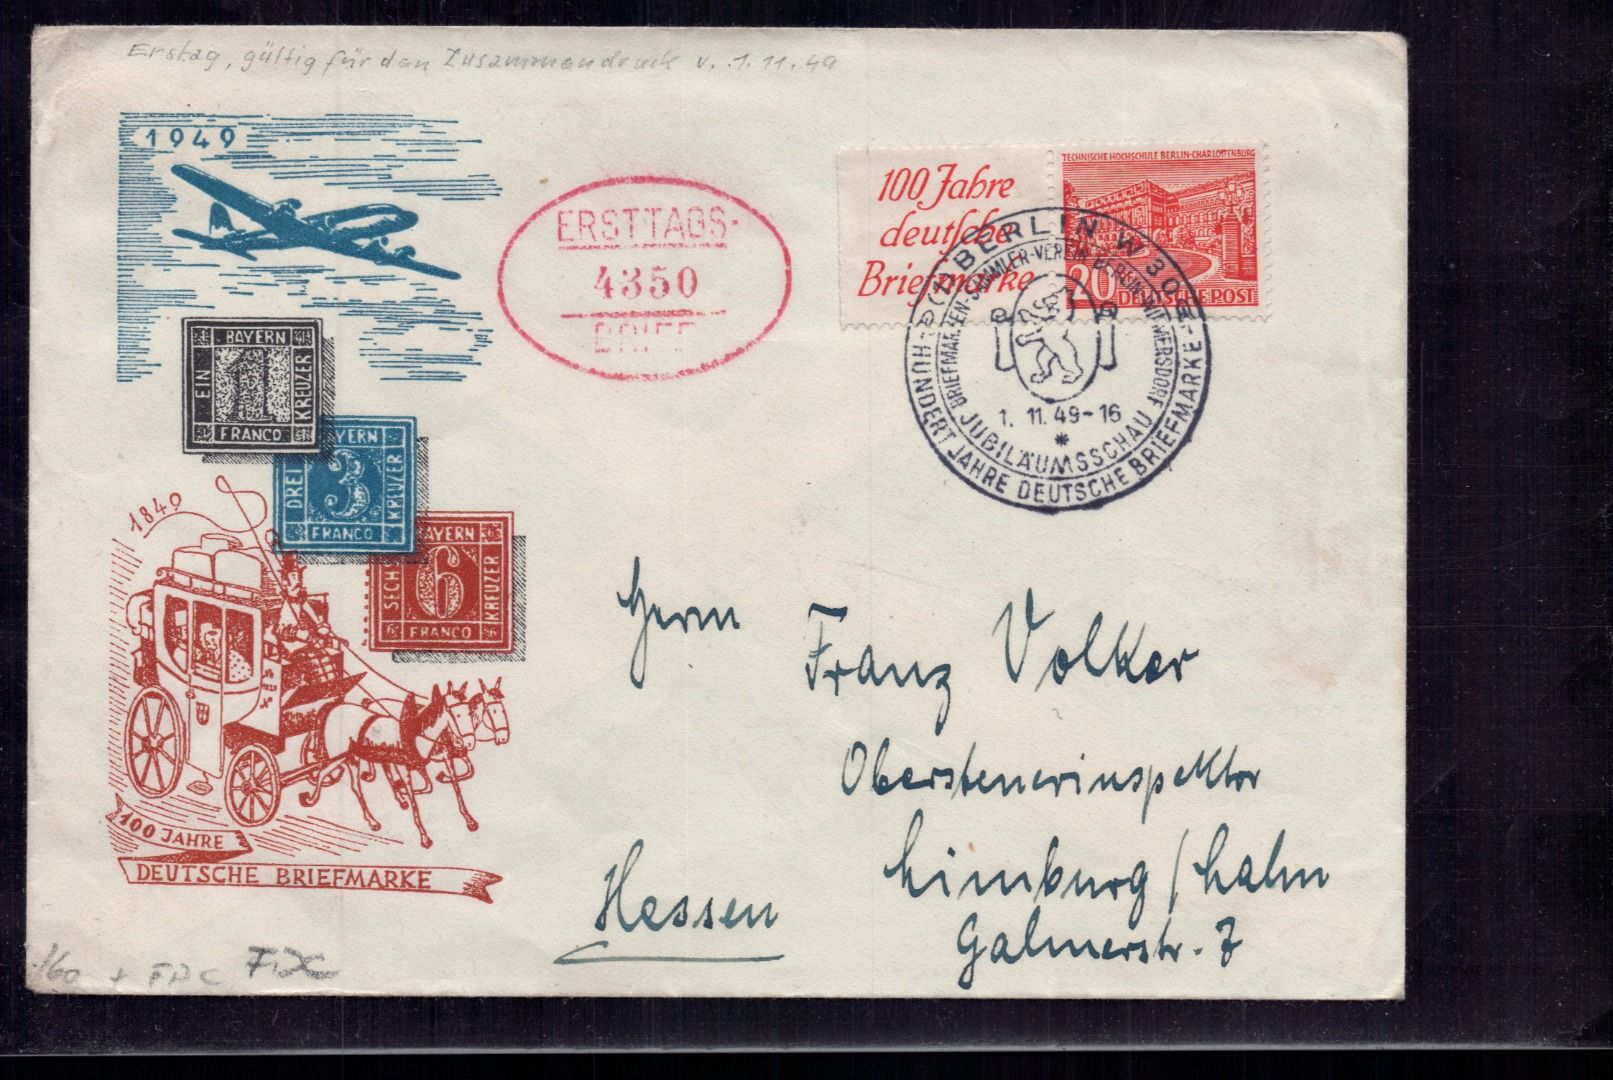 Erstag, gültig für den Zusammendruck v. 1.11.49
1949
ERSTTAGS-
4350
BRIEF
100 Jahre
deutsche
Briefmarke
TECHNISCHE HOCHSCHULE BERLIN-CHARLOTTENBURG
20 DEUTSCHE POST
BERLIN W 30
BRIEFMARKEN-SAMMLER-VEREIN BERLIN-WILMERSDORF
1. 11. 49-16
*
JUBILÄUMSSCHAU
HUNDERT JAHRE DEUTSCHE BRIEFMARKE
BAYERN
EIN
1
KREUZER
FRANCO
YERN
DREI
3
KREUZER
FRANCO
AYERN
SECH
6
KREUZER
FRANCO
1849
100 JAHRE
DEUTSCHE BRIEFMARKE
Herrn
Franz Volker
Obersteuerinspektor
Limburg/Lahn
Hessen
Galmerstr. 7
/60 + FDC FDC